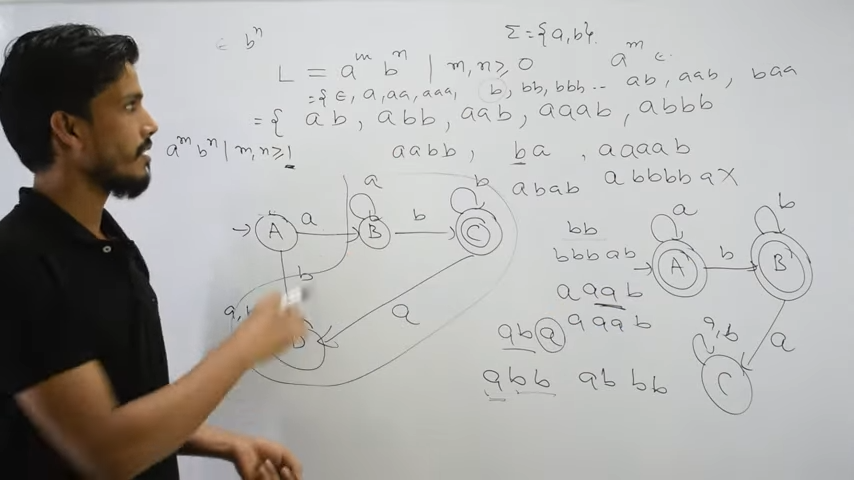 ϵ b^n
Σ = {a, b}.
L = a^m b^n | m, n ≥ 0
a^m ϵ
= { ϵ, a, aa, aaa, b, bb, bbb ... ab, aab, baa
= { ab, abb, aab, aaab, abbb
a^m b^n | m, n ≥ 1
aabb, ba, aaaab
abab abbbba X
A a B a b C b
b
a, b
a
D
bb
bbbab
aaab
aba aaab
abb abbb
A a b B b
a
C a, b